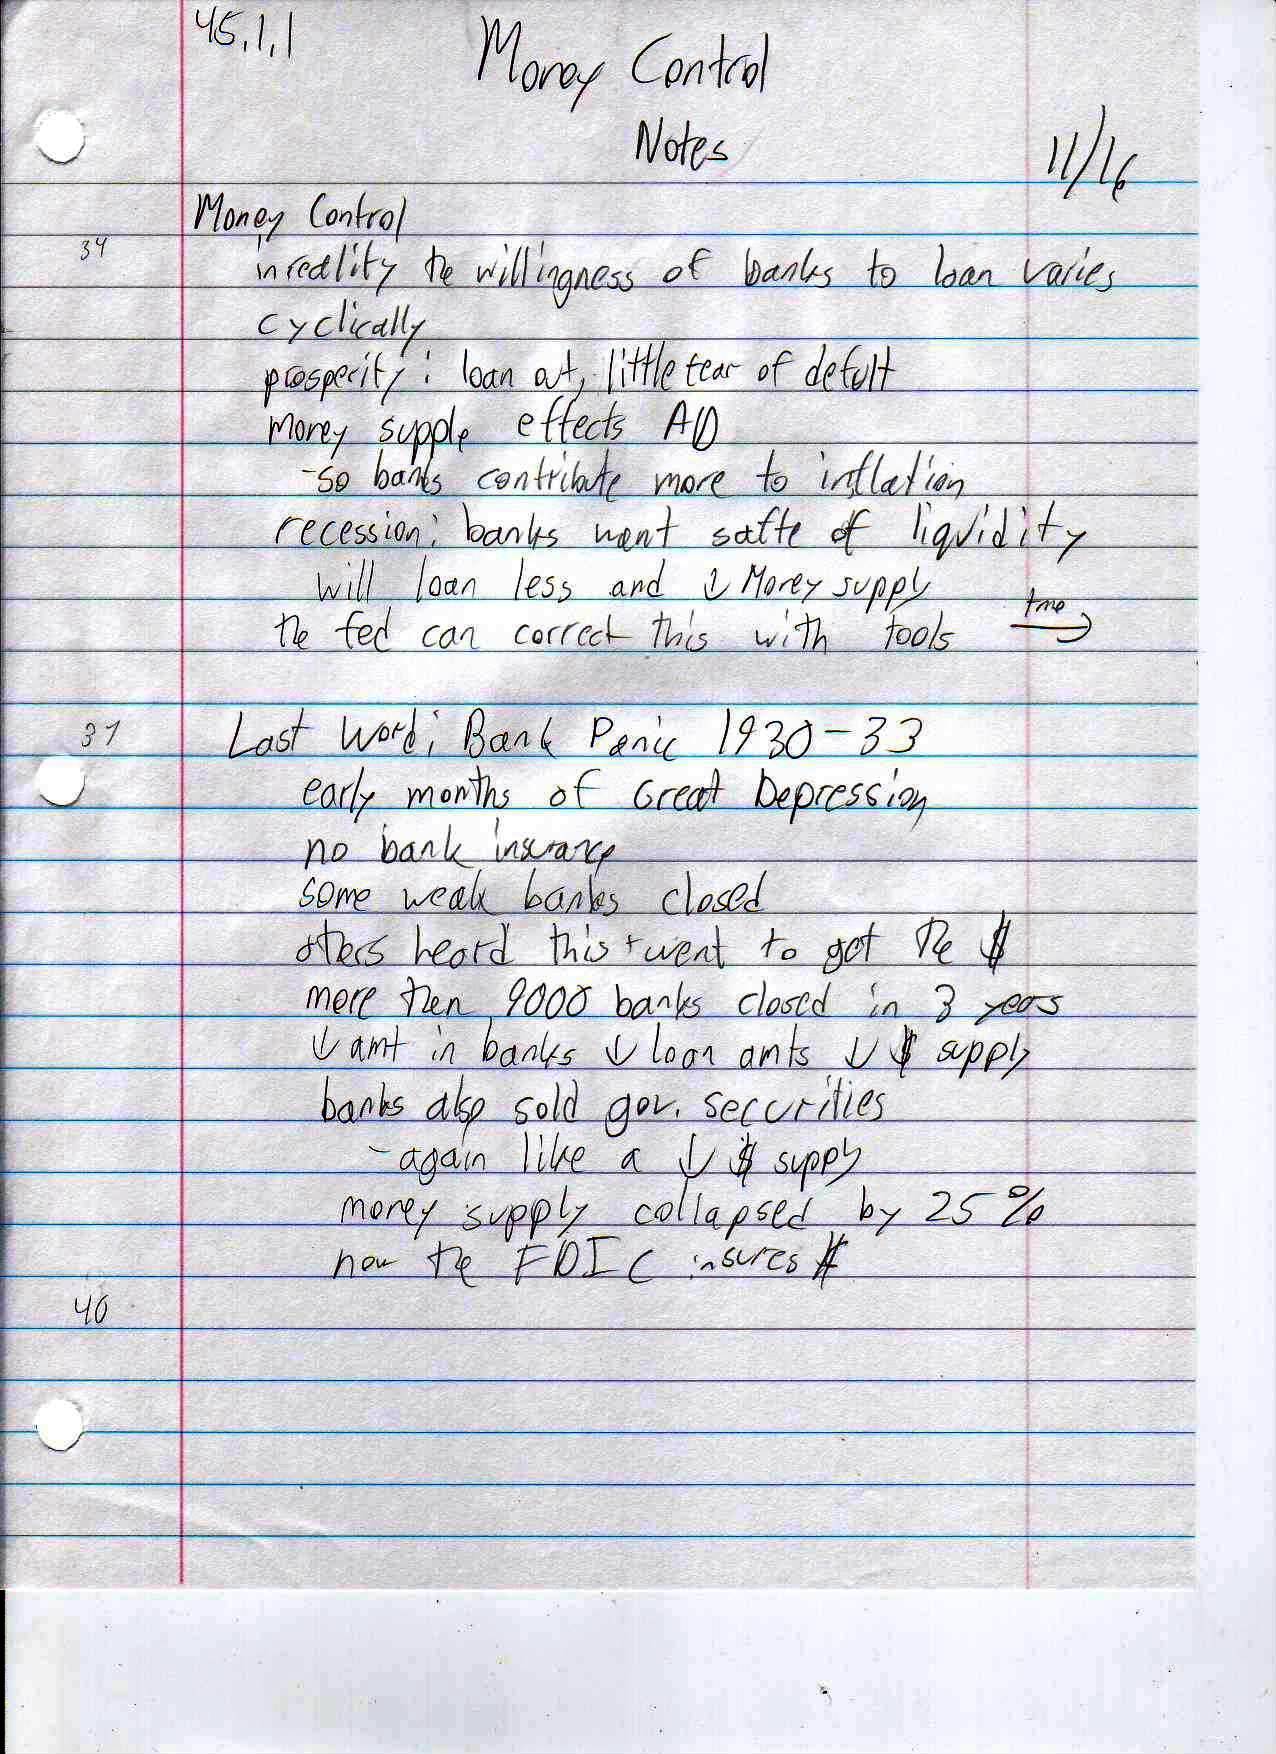 45.1.1
Money Control
Notes
11/16
Money Control
34
in reality the willingness of banks to loan varies
cyclically
prosperity: loan out, little fear of defult
money supple effects AD
-so banks contribute more to inflation
recession: banks want safte of liquidity
will loan less and ↓ Money supply
the fed can correct this with tools
time →
37
Last Word: Bank Panic 1930-33
early months of Great Depression
no bank insurance
some weak banks closed
others heard this + went to get the $
more then 9000 banks closed in 3 years
↓ amt in banks ↓ loan amts ↓ $ supply
banks also sold gov. securities
- again like a ↓ $ supply
money supply collapsed by 25%
now the FDIC insures $
40